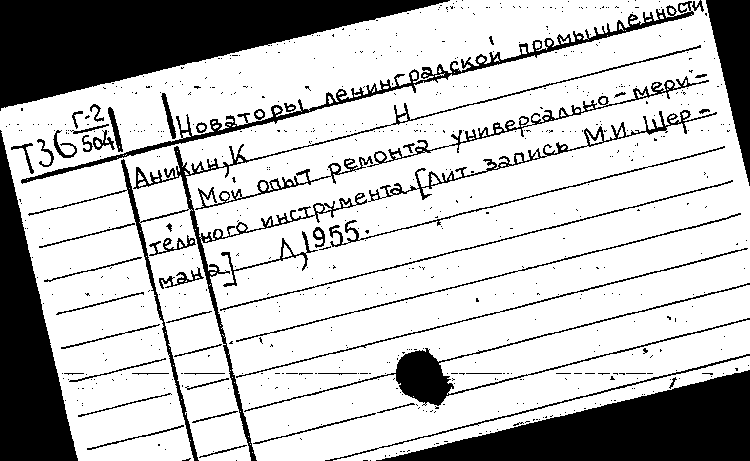 Новаторы ленинградской промышленности
Т36 Г-2
504
Н
Аникин, К
Мой опыт ремонта универсально-мери-
тельного инструмента. [Лит. запись М.И. Шер-
мана] Л, 1955.